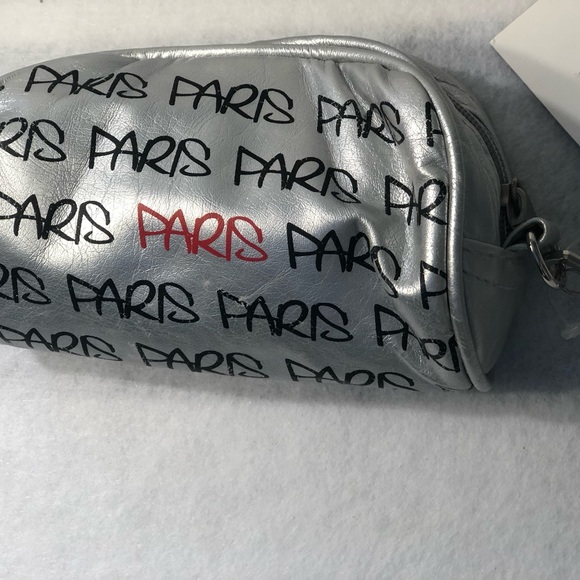 PARIS PARIS PARIS P
RIS PARIS PARIS PAR
PARIS PARIS PARIS P
RIS PARIS PARIS PARI
PARIS PARIS PARIS